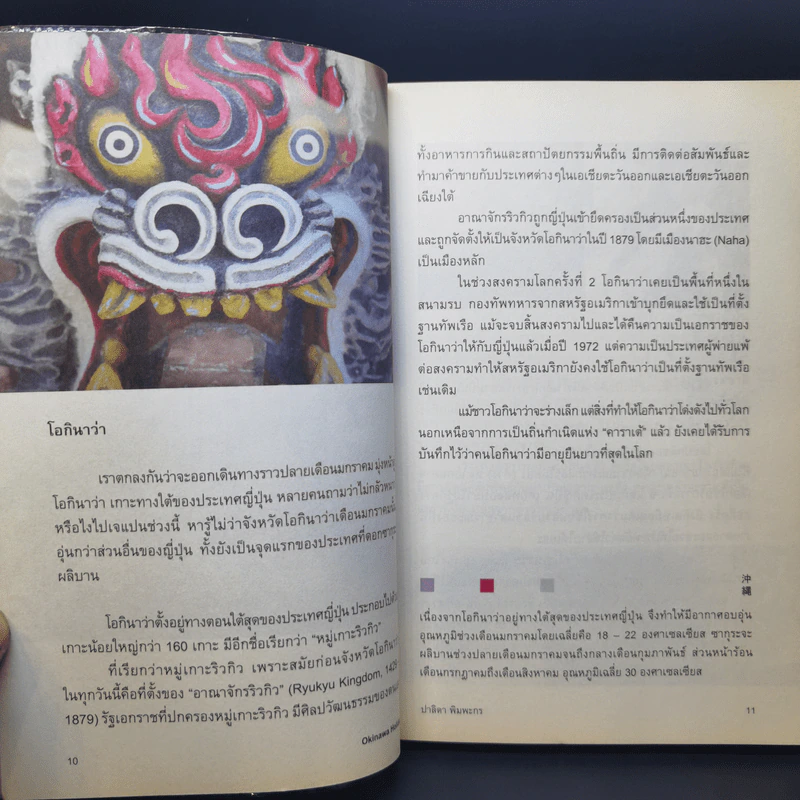 โอกินาว่า
เราตกลงกันว่าจะออกเดินทางราวปลายเดือนมกราคม
โอกินาว่า เกาะทางใต้ของประเทศญี่ปุ่น หลายคนถามว่าไม่กลัว
หรือไงไปเจแปนช่วงนี้ หารู้ไม่ว่าจังหวัดโอกินาว่าเดือนมกราคม
อุ่นกว่าส่วนอื่นของญี่ปุ่น ทั้งยังเป็นจุดแรกของประเทศที่ดอกซากุระ
ผลิบาน
โอกินาว่าตั้งอยู่ทางตอนใต้สุดของประเทศญี่ปุ่น ประกอบไป
เกาะน้อยใหญ่กว่า 160 เกาะ มีอีกชื่อเรียกว่า “หมู่เกาะริวกิว”
ที่เรียกว่าหมู่เกาะริวกิว เพราะสมัยก่อนจังหวัดโอกินาว่า
ในทุกวันนี้คือที่ตั้งของ “อาณาจักรริวกิว” (Ryukyu Kingdom, 1429
1879) รัฐเอกราชที่ปกครองหมู่เกาะริวกิว มีศิลปวัฒนธรรมของ
Okinawa
10
ทั้งอาหารการกินและสถาปัตยกรรมพื้นถิ่น มีการติดต่อสัมพันธ์และ
ทำมาค้าขายกับประเทศต่างๆในเอเชียตะวันออกและเอเชียตะวันออก
เฉียงใต้
อาณาจักรริวกิวถูกญี่ปุ่นเข้ายึดครองเป็นส่วนหนึ่งของประเทศ
และถูกจัดตั้งให้เป็นจังหวัดโอกินาว่าในปี 1879 โดยมีเมืองนาฮะ (Naha)
เป็นเมืองหลัก
ในช่วงสงครามโลกครั้งที่ 2 โอกินาว่าเคยเป็นพื้นที่หนึ่งใน
สนามรบ กองทัพทหารจากสหรัฐอเมริกาเข้าบุกยึดและใช้เป็นที่ตั้ง
ฐานทัพเรือ แม้จะจบสิ้นสงครามไปและได้คืนความเป็นเอกราชของ
โอกินาว่าให้กับญี่ปุ่นแล้วเมื่อปี 1972 แต่ความเป็นประเทศผู้พ่ายแพ้
ต่อสงครามทำให้สหรัฐอเมริกายังคงใช้โอกินาว่าเป็นที่ตั้งฐานทัพเรือ
เช่นเดิม
แม้ชาวโอกินาว่าจะร่างเล็ก แต่สิ่งที่ทำให้โอกินาว่าโด่งดังไปทั่วโลก
นอกเหนือจากการเป็นถิ่นกำเนิดแห่ง “คาราเต้” แล้ว ยังเคยได้รับการ
บันทึกไว้ว่าคนโอกินาว่ามีอายุยืนยาวที่สุดในโลก
沖縄
เนื่องจากโอกินาว่าอยู่ทางใต้สุดของประเทศญี่ปุ่น จึงทำให้มีอากาศอบอุ่น
อุณหภูมิช่วงเดือนมกราคมโดยเฉลี่ยคือ 18 – 22 องศาเซลเซียส ซากุระจะ
ผลิบานช่วงปลายเดือนมกราคมจนถึงกลางเดือนกุมภาพันธ์ ส่วนหน้าร้อน
เดือนกรกฎาคมถึงเดือนสิงหาคม อุณหภูมิเฉลี่ย 30 องศาเซลเซียส
ปาลิดา พิมพะกร
11